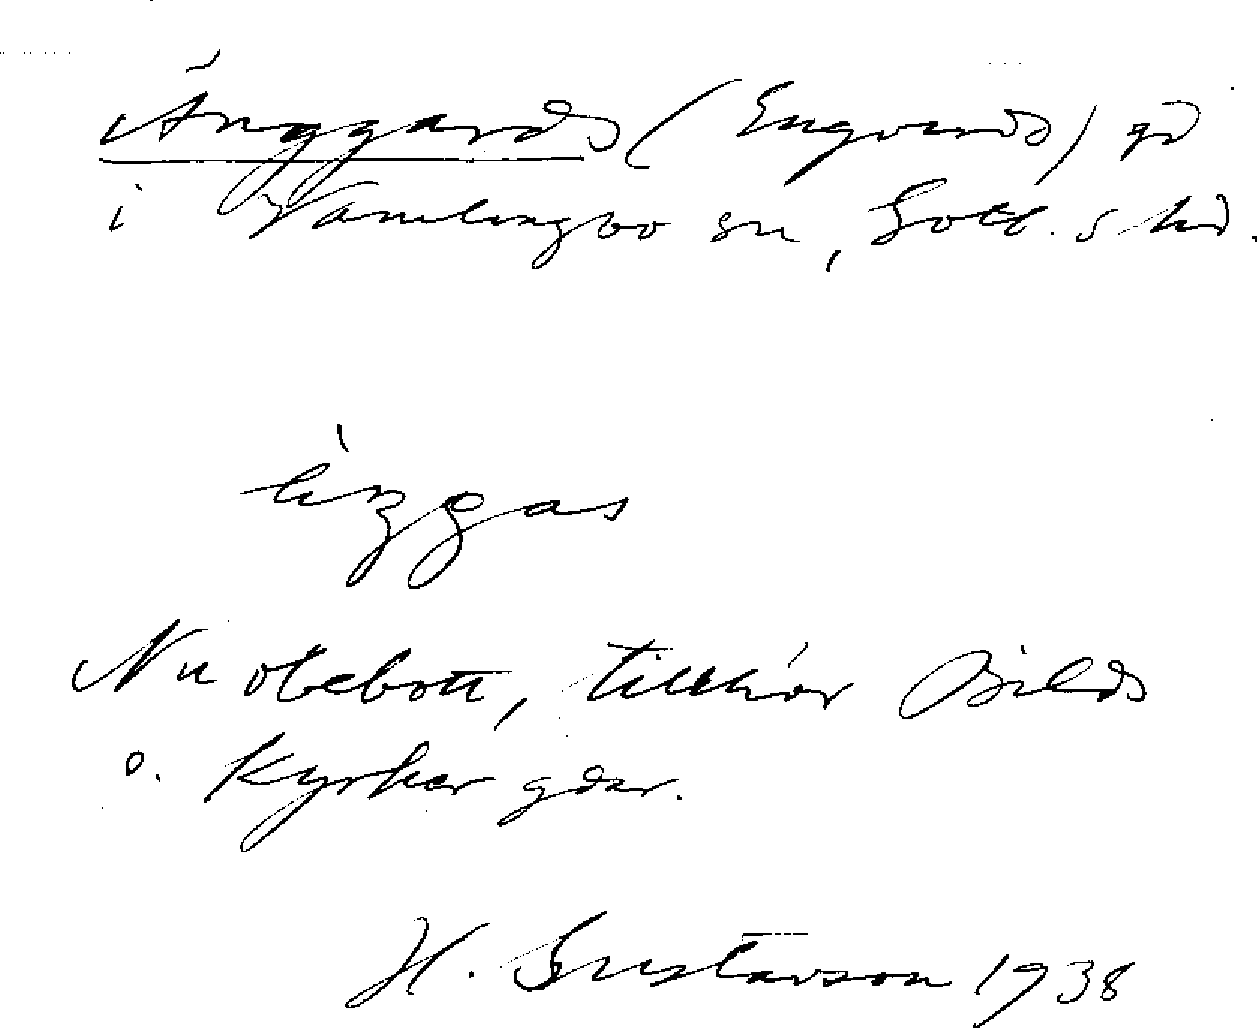 Änggards (Engvards) gd
i Vamlingbo sn, Gotl. s hd.
Nu obebott, tillhör Bilds
o. Kyrker gdar.
H. Gustavson 1938